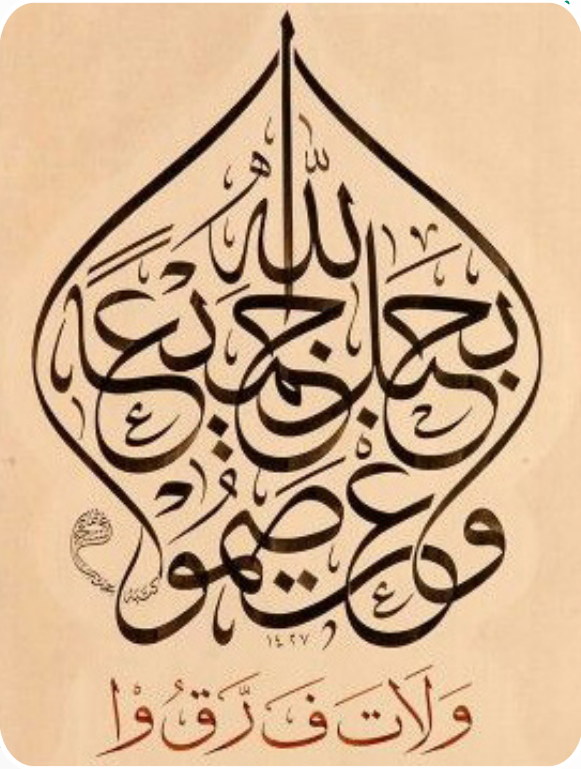 وَاعْتَصِمُوا
بِحَبْلِ اللّٰهِ جَمِيعًا
١٤٢٧
كتبه
وَلَا تَفَرَّقُوْا